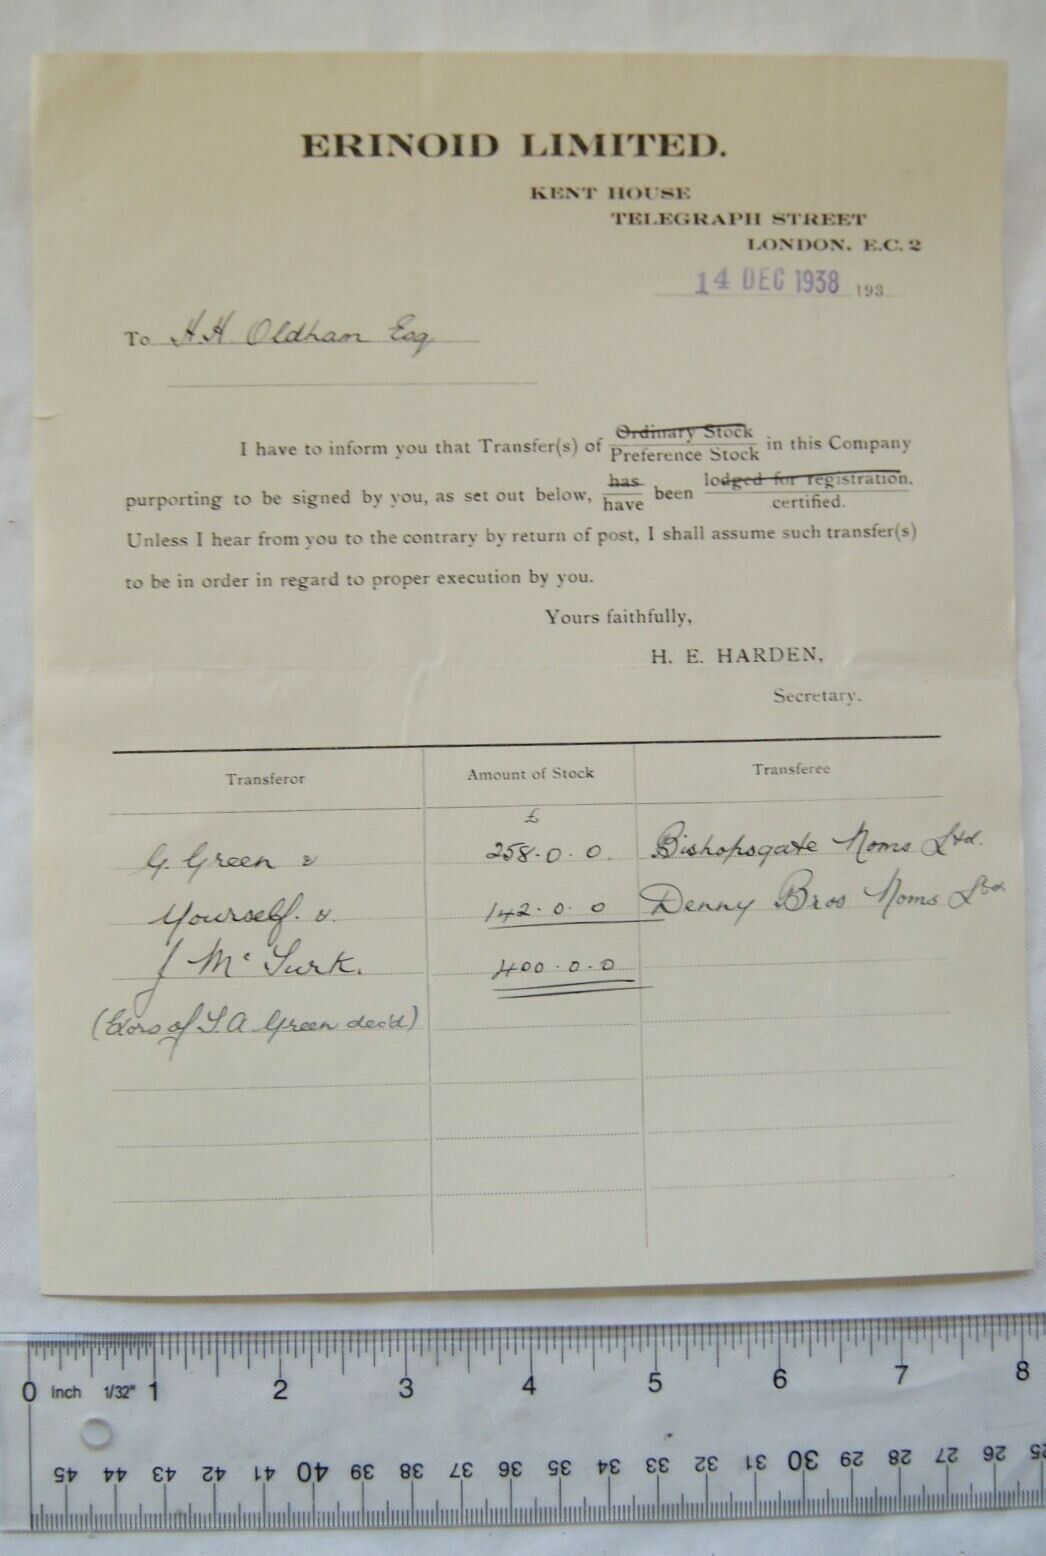 ERINOID LIMITED.
KENT HOUSE
TELEGRAPH STREET
LONDON. E.C. 2
14 DEC 1938 193
To H.H. Oldham Esq
I have to inform you that Transfer(s) of Ordinary Stock Preference Stock in this Company
purporting to be signed by you, as set out below, has have been lodged for registration. certified.
Unless I hear from you to the contrary by return of post, I shall assume such transfer(s)
to be in order in regard to proper execution by you.
Yours faithfully,
H. E. HARDEN,
Secretary.
Transferor Amount of Stock Transferee
£
G. Green & 258.0.0. Bishopsgate Noms Ltd.
Yourself. &. 142.0.0 Denny Bros Noms Ltd
J Mc Turk. 400.0.0
(Exors of T A Green dec'd)
0 Inch 1/32" 1 2 3 4 5 6 7 8
45 44 43 42 41 40 39 38 37 36 35 34 33 32 31 30 29 28 27 26 25